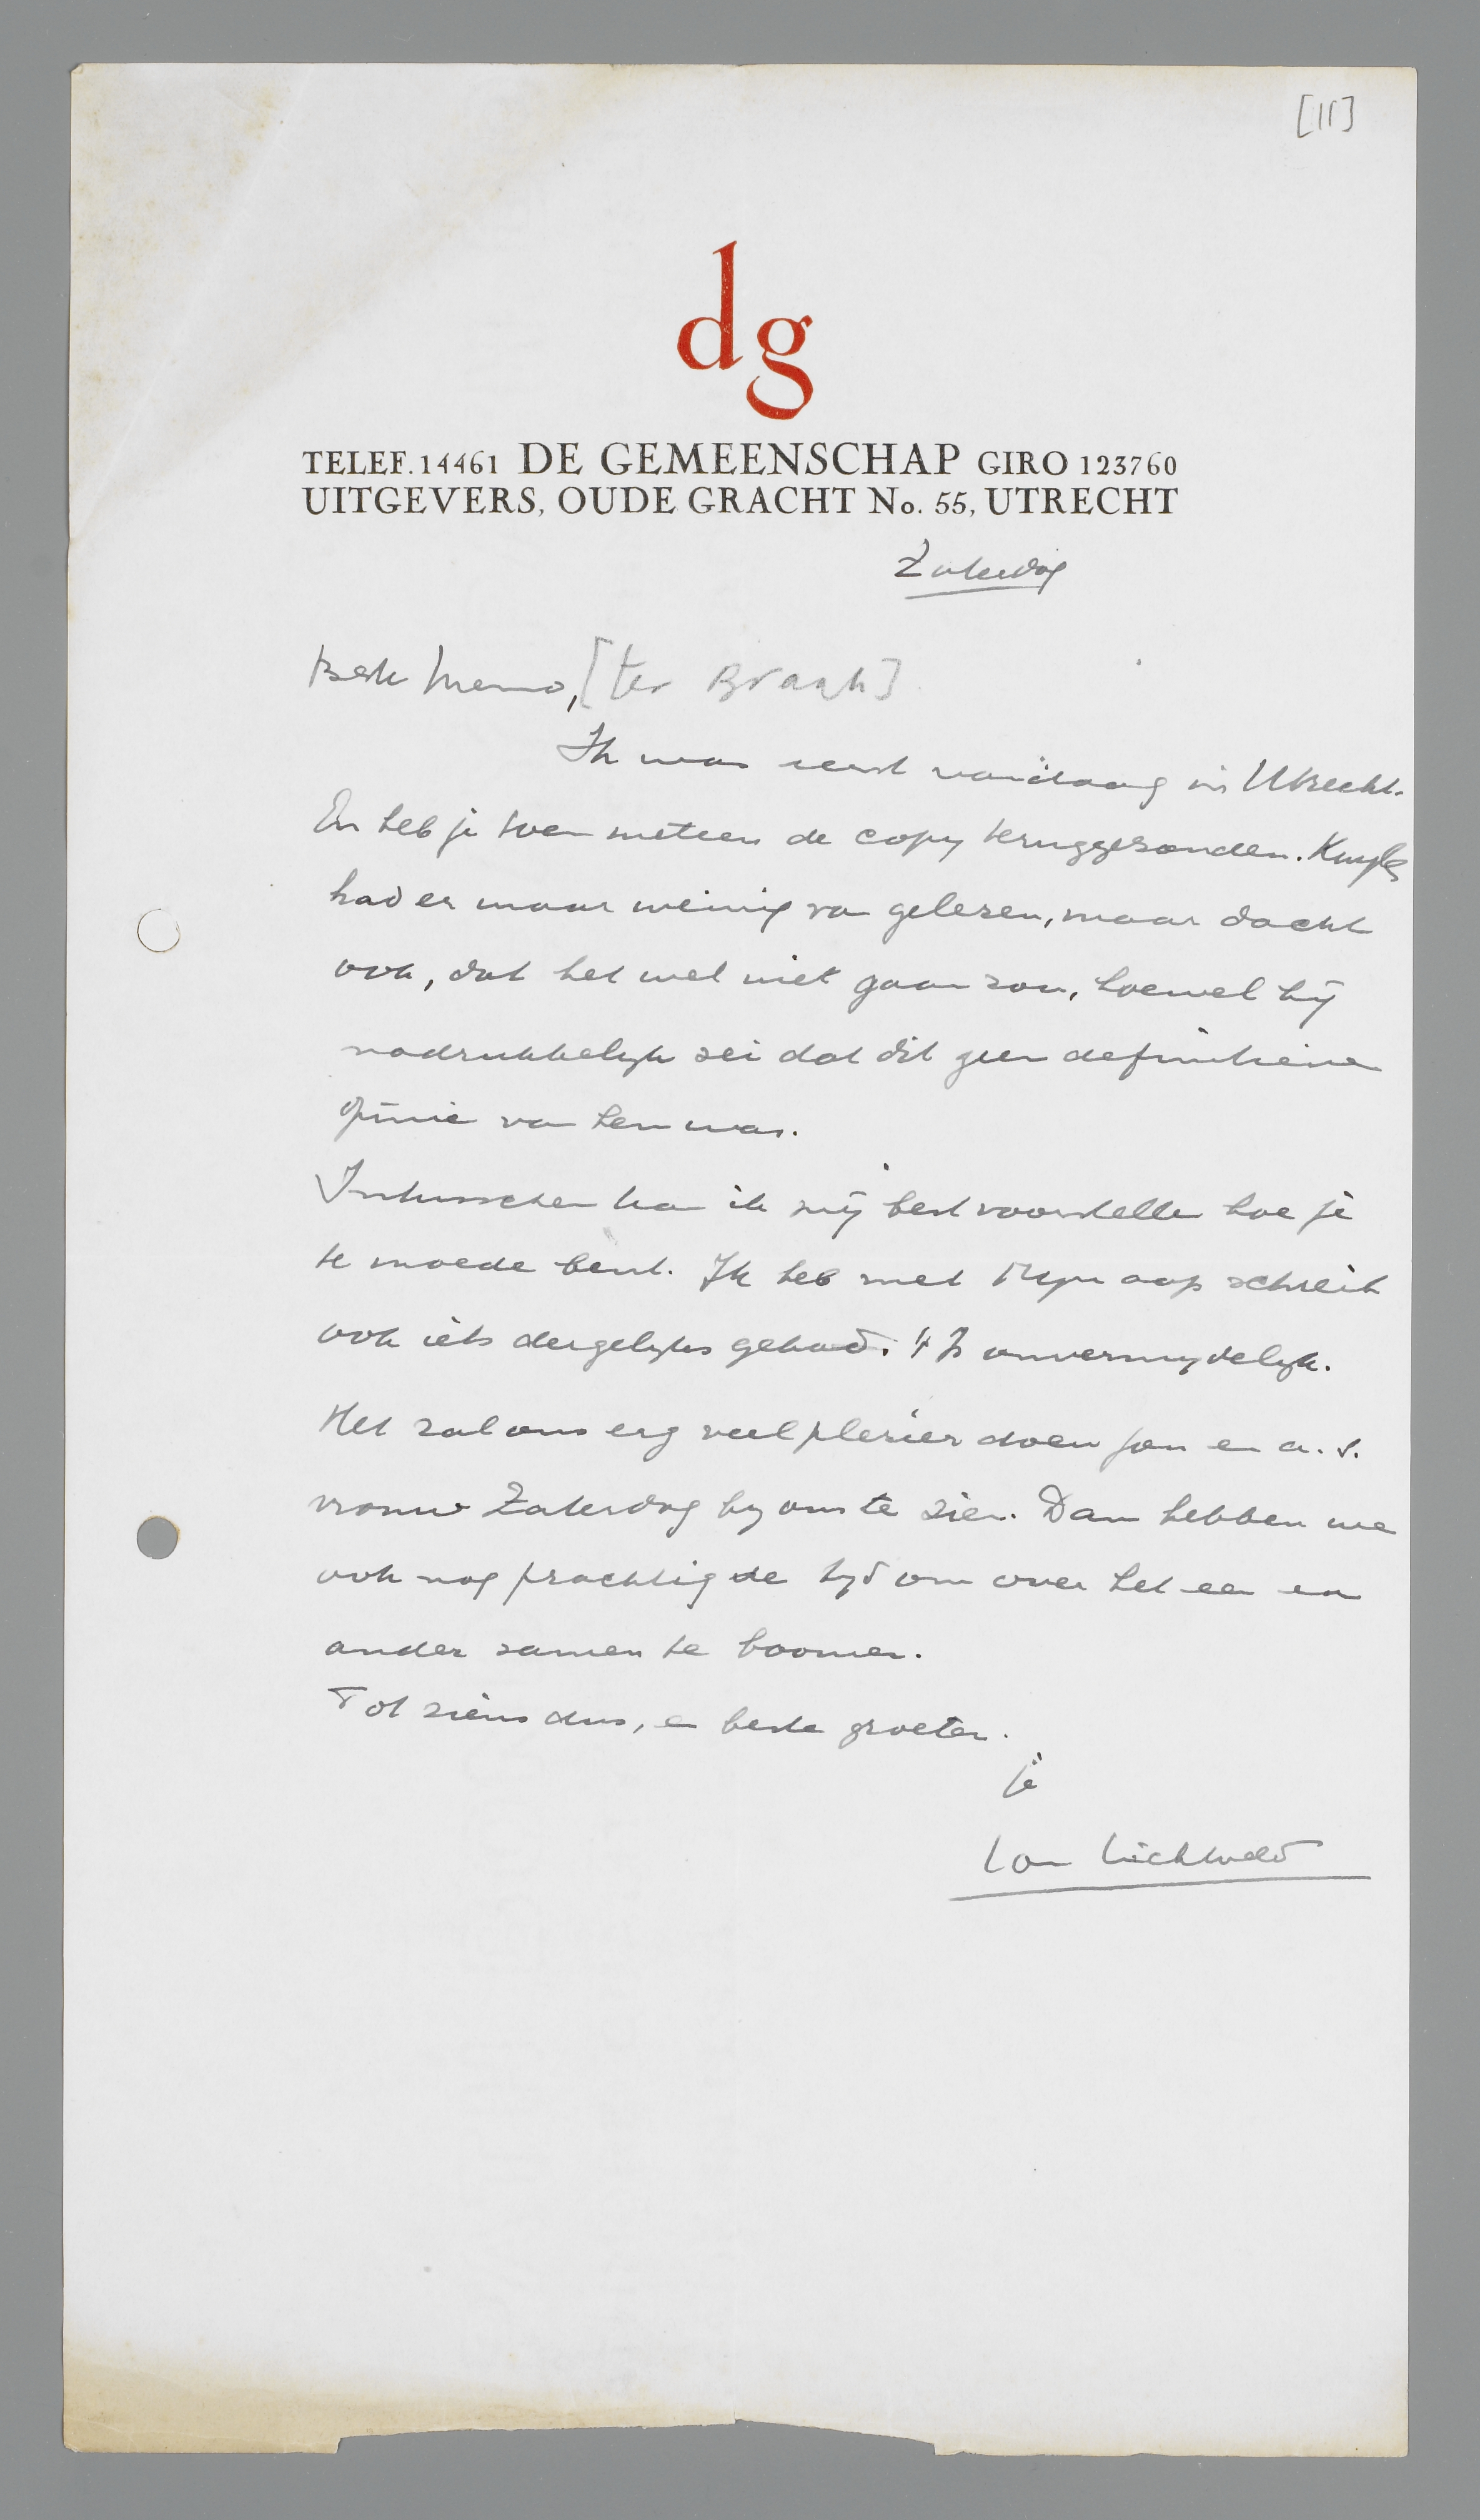 [11]
dg
TELEF. 14461 DE GEMEENSCHAP GIRO 123760
UITGEVERS, OUDE GRACHT No. 55, UTRECHT
Zaterdag
Beste Menno, [ter Braak]
Ik was eerst vandaag in Utrecht.
En heb je toen meteen de copy teruggezonden. Kuyle
had er maar weinig van gelezen, maar dacht
ook, dat het wel niet gaan zou, hoewel hij
nadrukkelijk zei dat dit geen definitieve
opinie van hem was.
Intusschen kan ik mij best voorstellen hoe je
te moede bent. Ik heb met Mijn aap schreit
ook iets dergelijks gehad. 't Is onvermijdelijk.
Het zal ons erg veel plezier doen jou en a.s.
vrouw Zaterdag bij ons te zien. Dan hebben we
ook nog prachtig de tijd om over het een en
ander samen te boomen.
Tot ziens dus, en beste groeten.
je
Lou Lichtveld